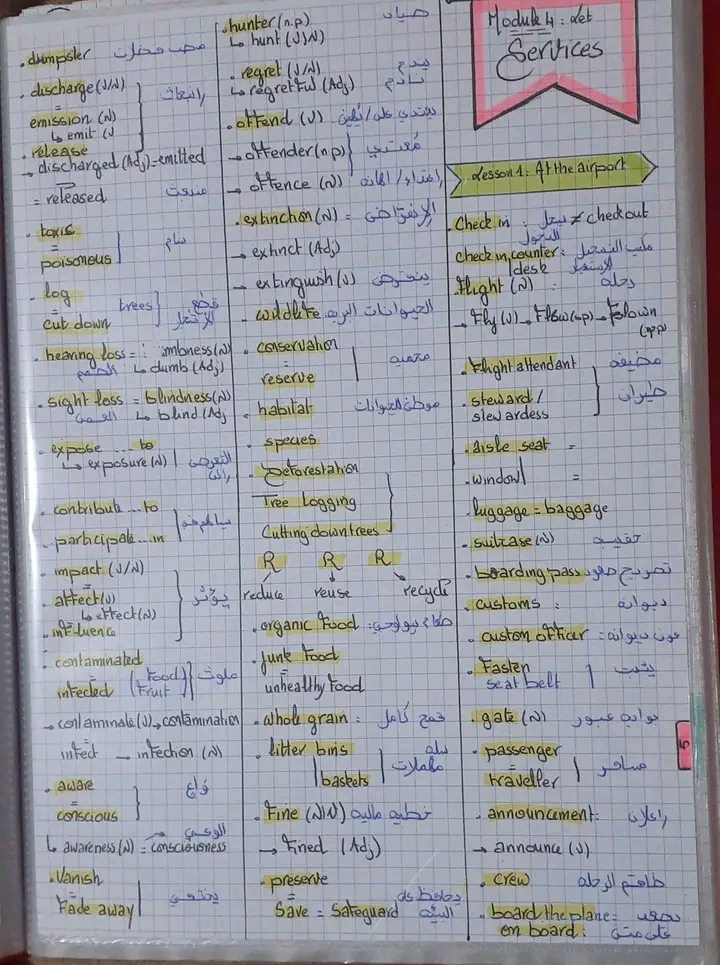 . dumpster مصب فضلات
. discharge (V/N)
=
emission (N)
↳ emit (V
. release
→ discharged (Adj) = emitted
= released
. toxic
=
poisonous
سام
. log
=
cut down
trees
قطع
الأشجار
. hearing loss =
↳ dumb (Adj)
. sight loss = blindness (N)
↳ blind (Adj
. expose ... to
↳ exposure (N)
. contribute ... to
. participate ... in
. impact (V/N)
=
. affect (V)
↳ effect (N)
. influence
يؤثر
. contaminated
infected
(Food
Fruit)
ملوث
→ contaminate (V) → contamination
infect → infection (N)
. aware
=
conscious
واع
↳ awareness (N) = consciousness
الوعي
. Vanish
=
Fade away
يختفي
. hunter (n.p) صياد
↳ hunt (V/N)
. regret (V/N)
↳ regretful (Adj)
. offend (V)
→ offender (n.p)
→ offence (N)
. extinction (N) = الإنقراض
→ extinct (Adj)
→ extinguish (V) ينقرض
. wildlife الحيوانات البرية
. conservation
=
reserve
محمية
. habitat موطن الحيوانات
. species
. Deforestation
Tree logging
Cutting down trees
R R R
reduce reuse recycle
. organic food : طعام بيولوجي
. junk food
=
unhealthy food
. whole grain : قمح كامل
. litter bins
baskets
سلة
مهملات
. Fine (V/N) خطية مالية
→ Fined (Adj)
. preserve
=
Save = Safeguard
يحافظ على
البيئة
Module 4 :
Services
Lesson 1 : At the airport
. Check in : ≠ check out
check in counter :
desk
. Flight (N) : رحلة
→ Fly (V) → Flew (sp) → Flown
(pp)
. Flight attendant
. steward /
stewardess
مضيفة
طيران
. aisle seat =
. window =
. luggage = baggage
. suitcase (N) حقيبة
. boarding pass تصريح صعود
. customs : ديوانة
. custom officer : عون ديوانة
. Fasten
seat belt
يثبت
. gate (N) بوابة عبور
. passenger
=
traveller
مسافر
. announcement : إعلان
→ announce (V)
. crew طاقم الرحلة
. board the plane = يصعد
on board : على متن
5